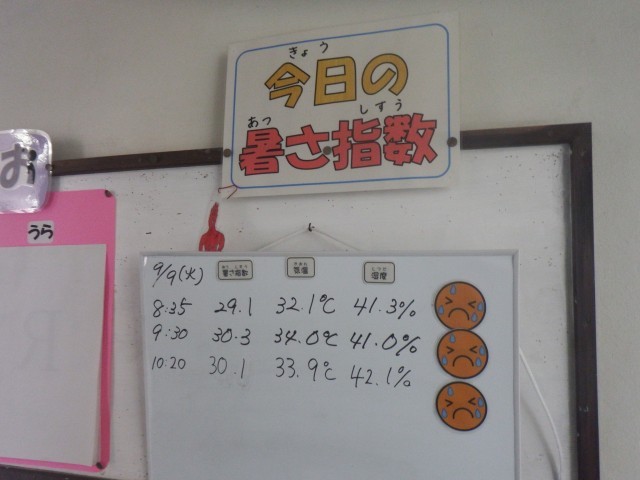 きょう
今日の
あつ しすう
暑さ指数
お
うら
9/9(火) 暑さ指数 気温 湿度
8:35 29.1 32.1℃ 41.3%
9:30 30.3 34.0℃ 41.0%
10:20 30.1 33.9℃ 42.1%